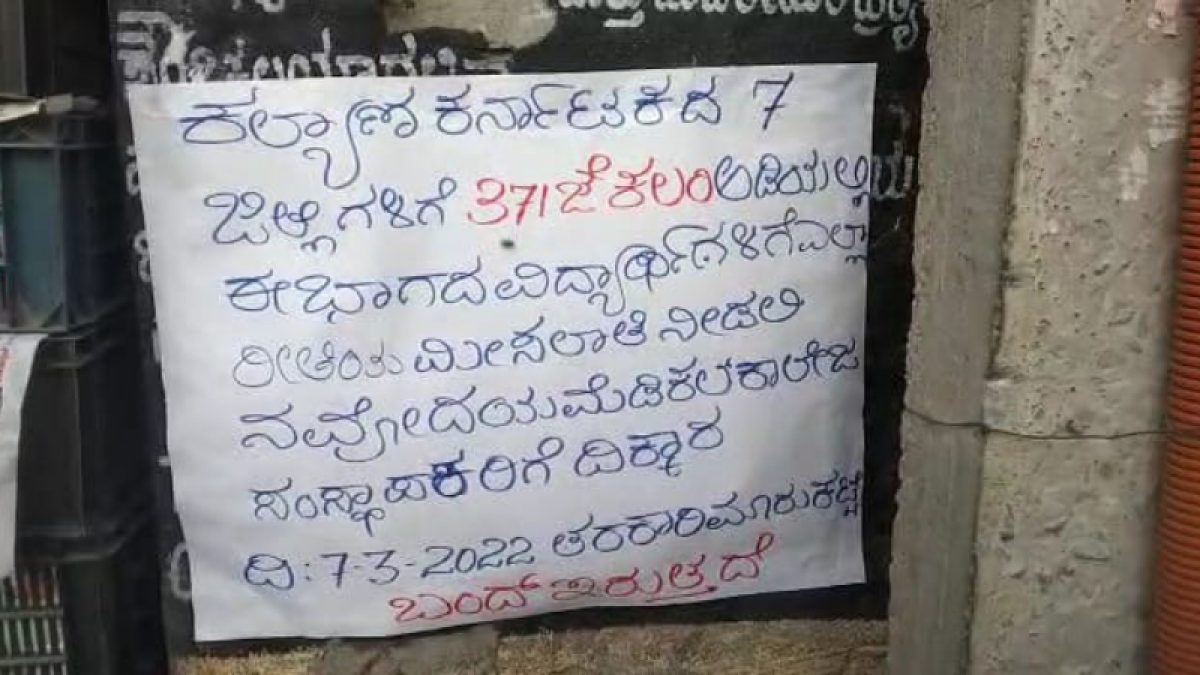 ಕಲ್ಯಾಣ ಕರ್ನಾಟಕದ 7
ಜಿಲ್ಲಿಗಳಿಗೆ 371ಜೆ ಕಲಂ ಅಡಿಯಲ್ಲಿಯ
ಈಭಾಗದ ವಿದ್ಯಾರ್ಥಿಗಳಿಗೆ ಎಲ್ಲಾ
ರೀತಿಯ ಮೀಸಲಾತಿ ನೀಡಲಿ
ನವ್ರೋದಯ ಮೆಡಿಕಲ ಕಾಲೇಜ
ಸಂಸ್ಥಾಪಕರಿಗೆ ದಿಕ್ಕಾರ
ದಿ: 7-3-2022 ತರಕಾರಿ ಮಾರುಕಟ್ಟೆ
ಬಂದ್ ಇರುತ್ತದೆ